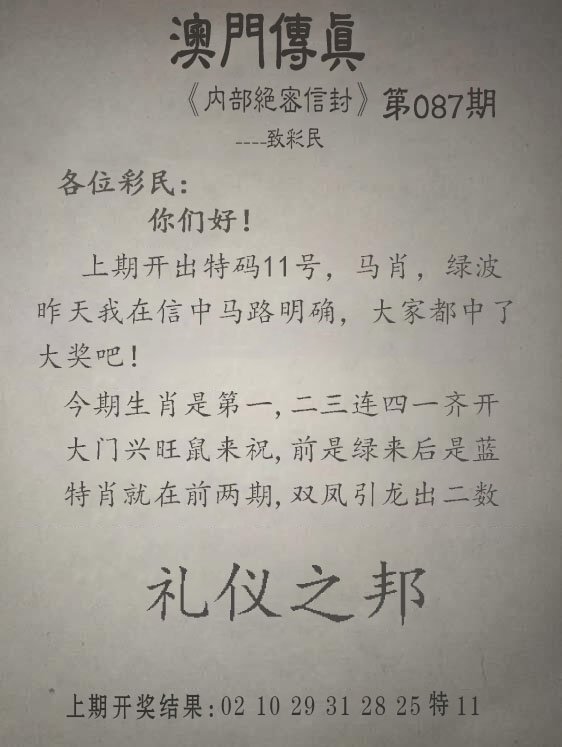 澳門傳眞
《内部絕密信封》第087期
----致彩民
各位彩民：
你们好！
上期开出特码11号，马肖，绿波
昨天我在信中马路明确，大家都中了
大奖吧！
今期生肖是第一,二三连四一齐开
大门兴旺鼠来祝,前是绿来后是蓝
特肖就在前两期,双凤引龙出二数
礼仪之邦
上期开奖结果:02 10 29 31 28 25 特 11